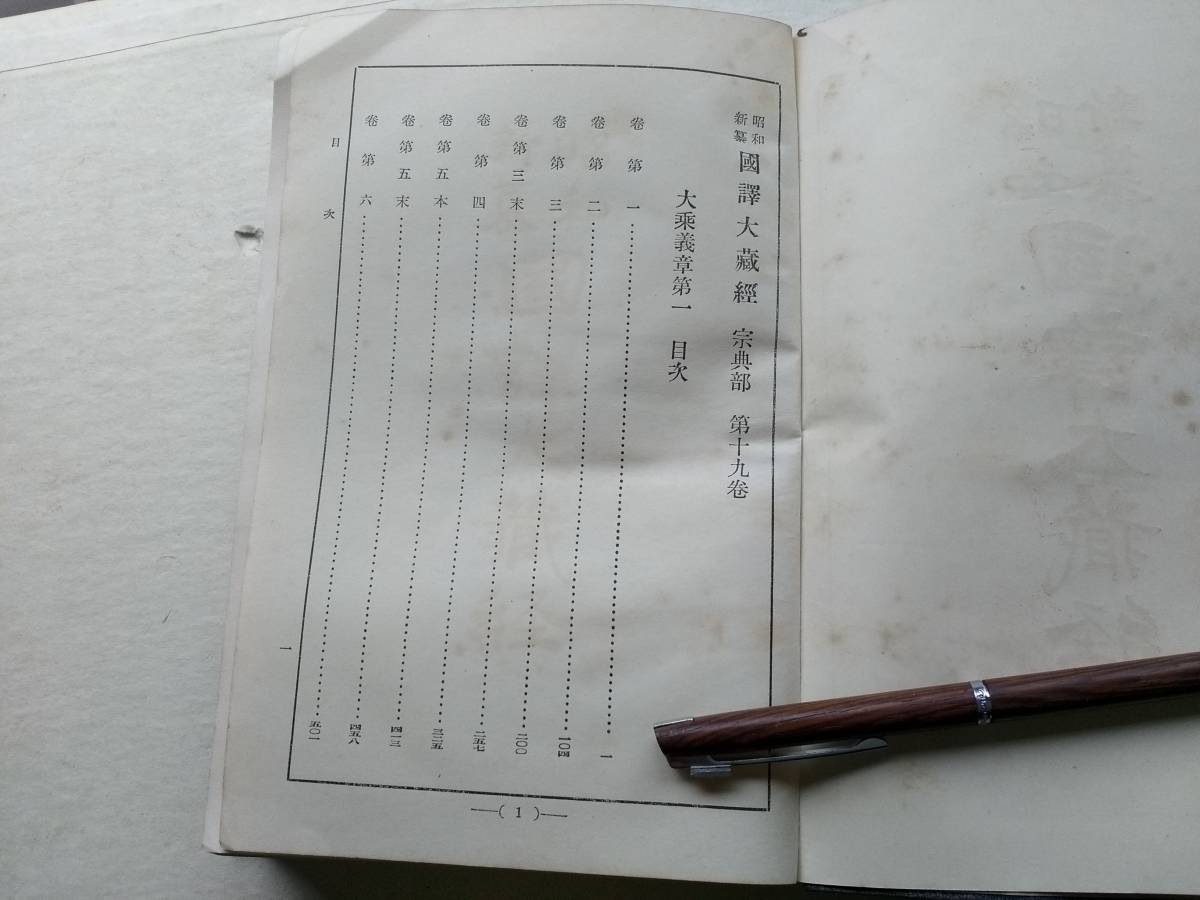 昭和新纂 國譯大藏經 宗典部 第十九卷
大乘義章第一 目次
卷第一……一
卷第二……一〇四
卷第三……二〇〇
卷第三末……二五七
卷第四……三二五
卷第五本……四一三
卷第五末……四五八
卷第六……五〇一
目次
一
—( 1 )—